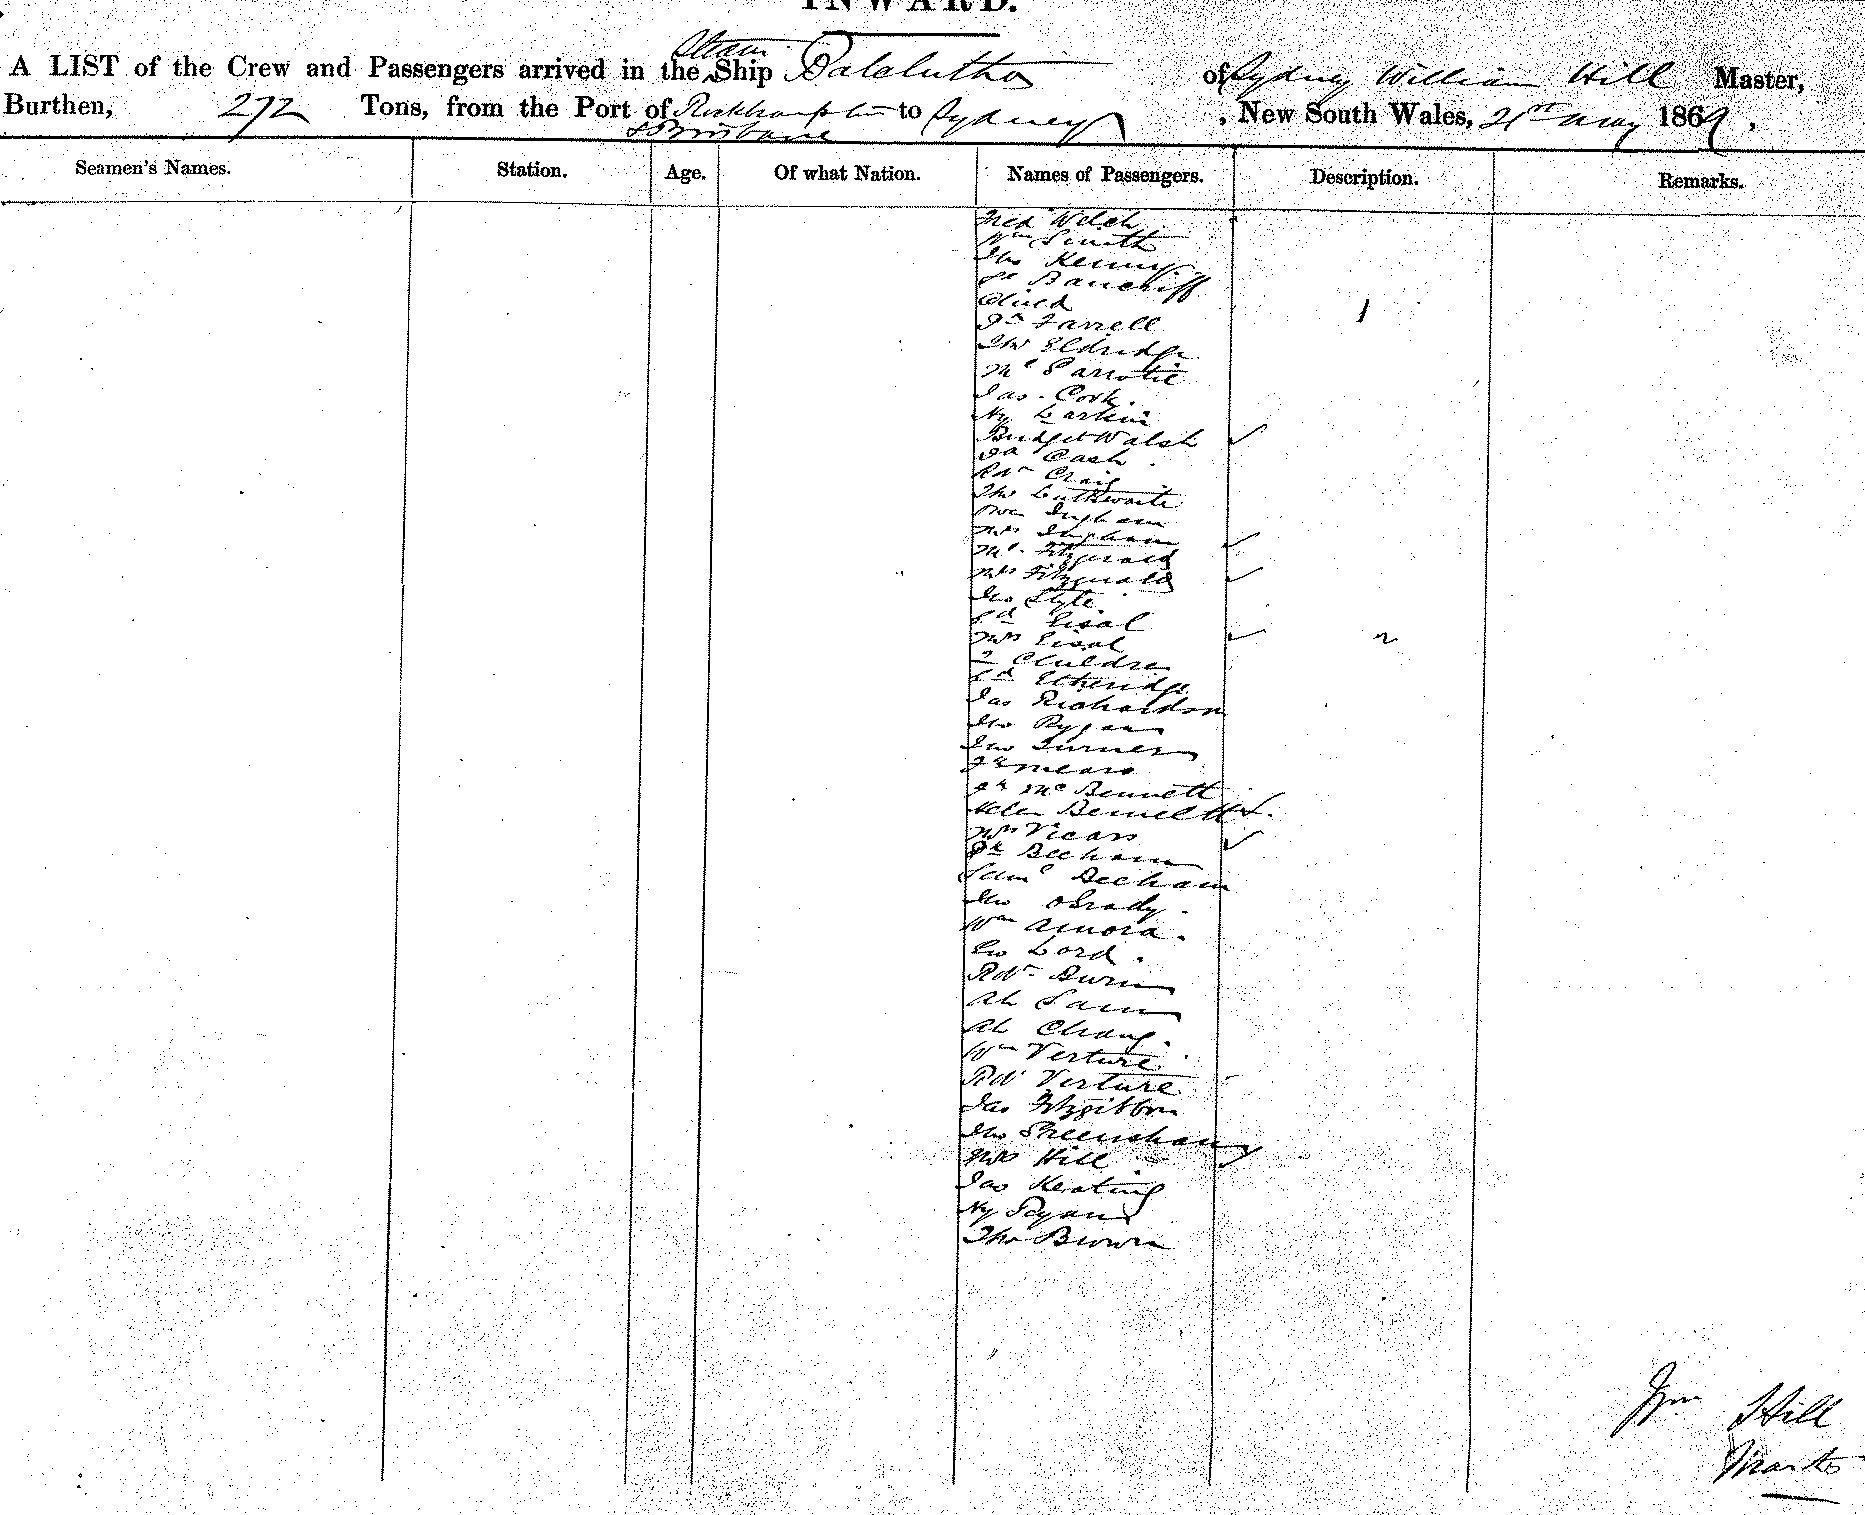 INWARD.
A LIST of the Crew and Passengers arrived in the Steam Ship Balclutha of Sydney William Hill Master,
Burthen, 272 Tons, from the Port of Rockhampton to Sydney, New South Wales, 21st May 1869,
& Brisbane
Seamen's Names. Station. Age. Of what Nation. Names of Passengers. Description. Remarks.
Fred Welch
Wm Smith
Jno Kenny
Bancriff
Child 1
Farrell
Jno Eldridge
Mr Parrotte
Jas. Cook.
Hy Larkin
Bridget Walsh
Cash
Rdr Craig
Thos Luthwaite
Owen Ingham
Mrs Ingham
Mr. Fitzgerald
Mrs Fitzgerald
Jno Slyte
Ed Sisal
Mrs Sisal
2 Children
Ed Etheridge
Jas Richardson
Jno Rygan
Jno Turner
Mears
Mc Bennett
Helen Bennett
Mrs Vicars
Beeham
Saml Beeham
Jno OGrady.
Wm Amora.
Geo Lord.
Rdr Burn
Ah Sam
Ah Chang.
Wm Verture
Rdr Verture
Jas Fitzgibbon
Jno Sheenshany
Mrs Hill
Jas Keating
Hy Ryan
Thos Brown
Wm Hill
Master